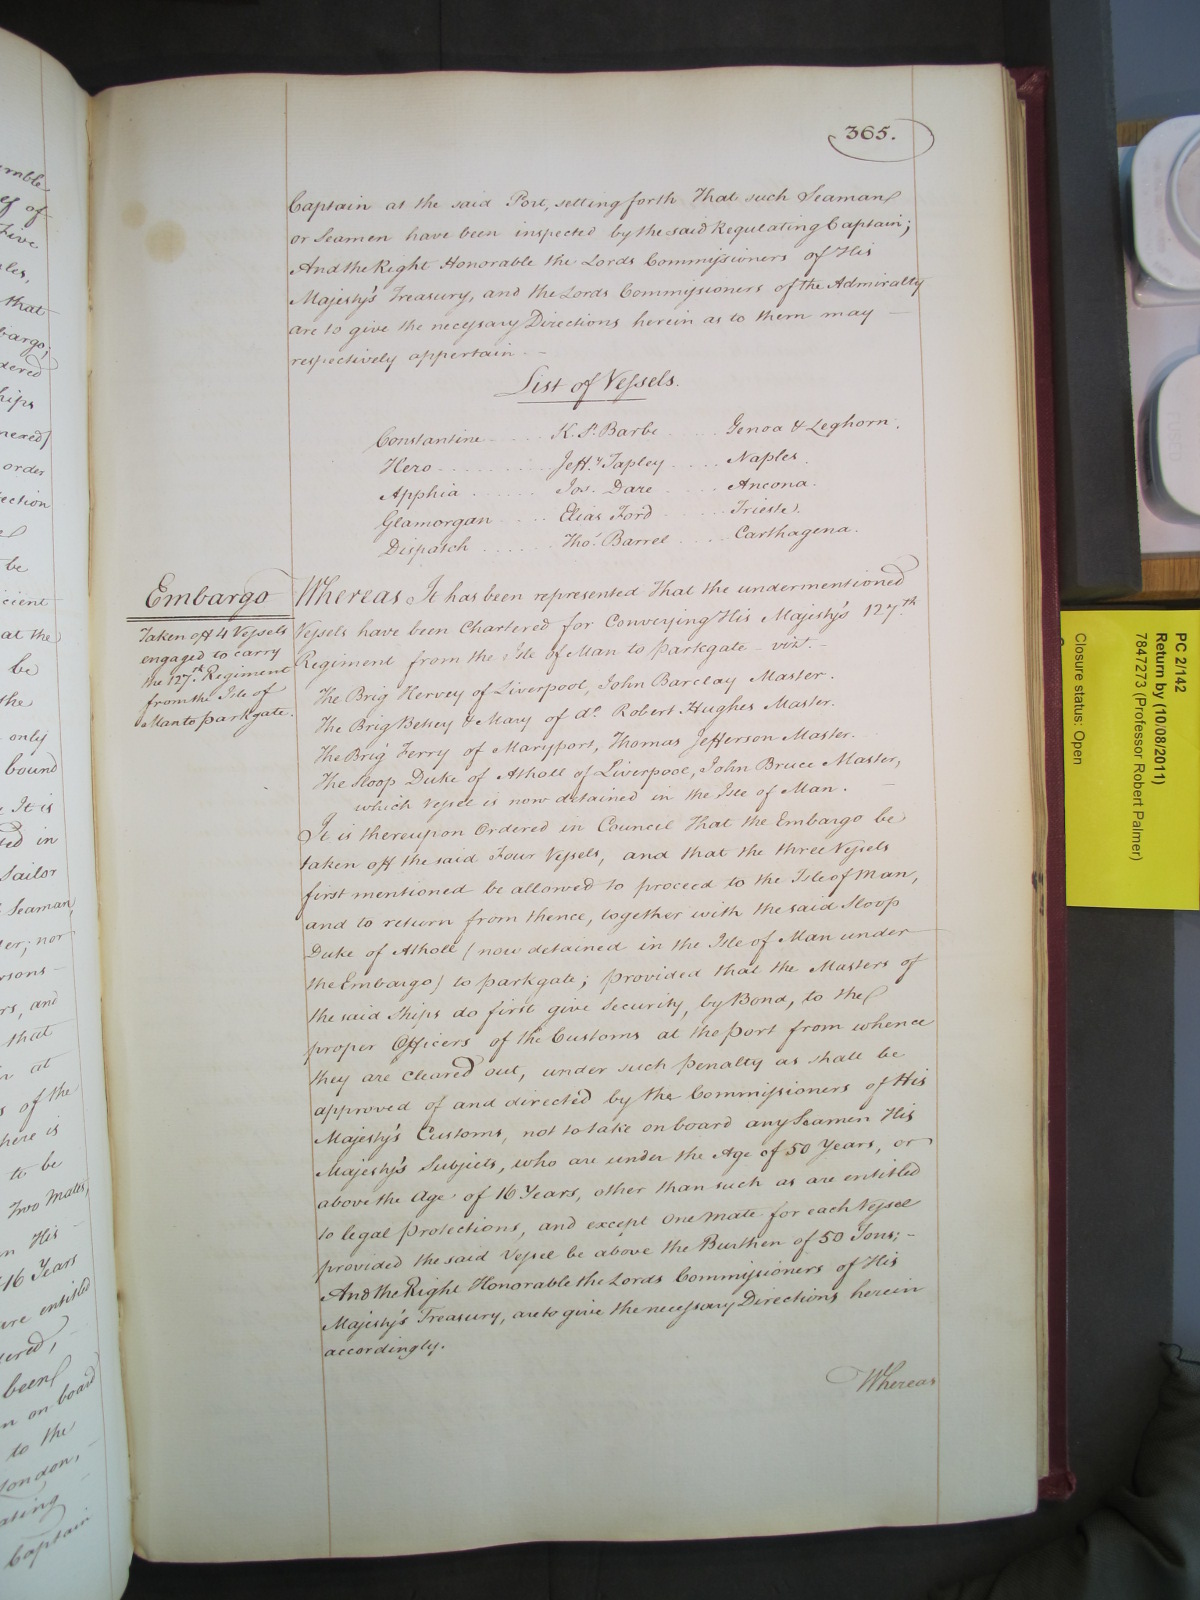 emble
ef of
Five
les,
that
bargo;
dered
hips
nexed
order
ection
be
icient
at the
be
the
only
bound
It is
ted in
Sailor
Seaman,
ter; nor
rsons
rs, and
that
at
s of the
here is
to be
Two Mates,
n His
16 Years
are entitled
dered,
been
n on board
to the
London,
ating
Captain
365.
Captain at the said Port, setting forth That such Seaman
or Seamen have been inspected by the said Regulating Captain;
And the Right Honorable the Lords Commissioners of His
Majesty's Treasury, and the Lords Commissioners of the Admiralty
are to give the necessary Directions herein as to them may
respectively appertain.
List of Vessels.
Constantine K. St. Barbe Genoa & Leghorn.
Hero Jeff.y Tapley Naples.
Apphia Jos. Dare Ancona.
Glamorgan Elias Ford Trieste.
Dispatch Tho.s Barrel Carthagena.
Embargo
Taken off 4 Vessels
engaged to carry
the 127th Regiment
from the Isle of
Man to parkgate.
Whereas It has been represented That the undermentioned
Vessels have been Chartered for Conveying His Majesty's 127th
Regiment from the Isle of Man to Parkgate – vizt. –
The Brig Hervey of Liverpool, John Barclay Master.
The Brig Betsey & Mary of do. Robert Hughes Master.
The Brig Ferry of Maryport, Thomas Jefferson Master.
The Sloop Duke of Atholl of Liverpool, John Bruce Master,
which Vessel is now detained in the Isle of Man.
It is thereupon Ordered in Council That the Embargo be
taken off the said Four Vessels, and that the three Vessels
first mentioned be allowed to proceed to the Isle of Man,
and to return from thence, together with the said Sloop
Duke of Atholl (now detained in the Isle of Man under
the Embargo) to parkgate; provided that the Masters of
the said Ships do first give Security, by Bond, to the
proper Officers of the Customs at the port from whence
they are cleared out, under such Penalty as shall be
approved of and directed by the Commissioners of His
Majesty's Customs, not to take on board any Seamen His
Majesty's Subjects, who are under the Age of 50 Years, or
above the Age of 16 Years, other than such as are entitled
to legal protections, and except One Mate for each Vessel
provided the said Vessel be above the Burthen of 50 Tons; –
And the Right Honorable the Lords Commissioners of His
Majesty's Treasury, are to give the necessary Directions herein
accordingly.
Whereas
PC 2/142
Return by (10/08/2011)
7847273 (Professor Robert Palmer)
Closure status: Open